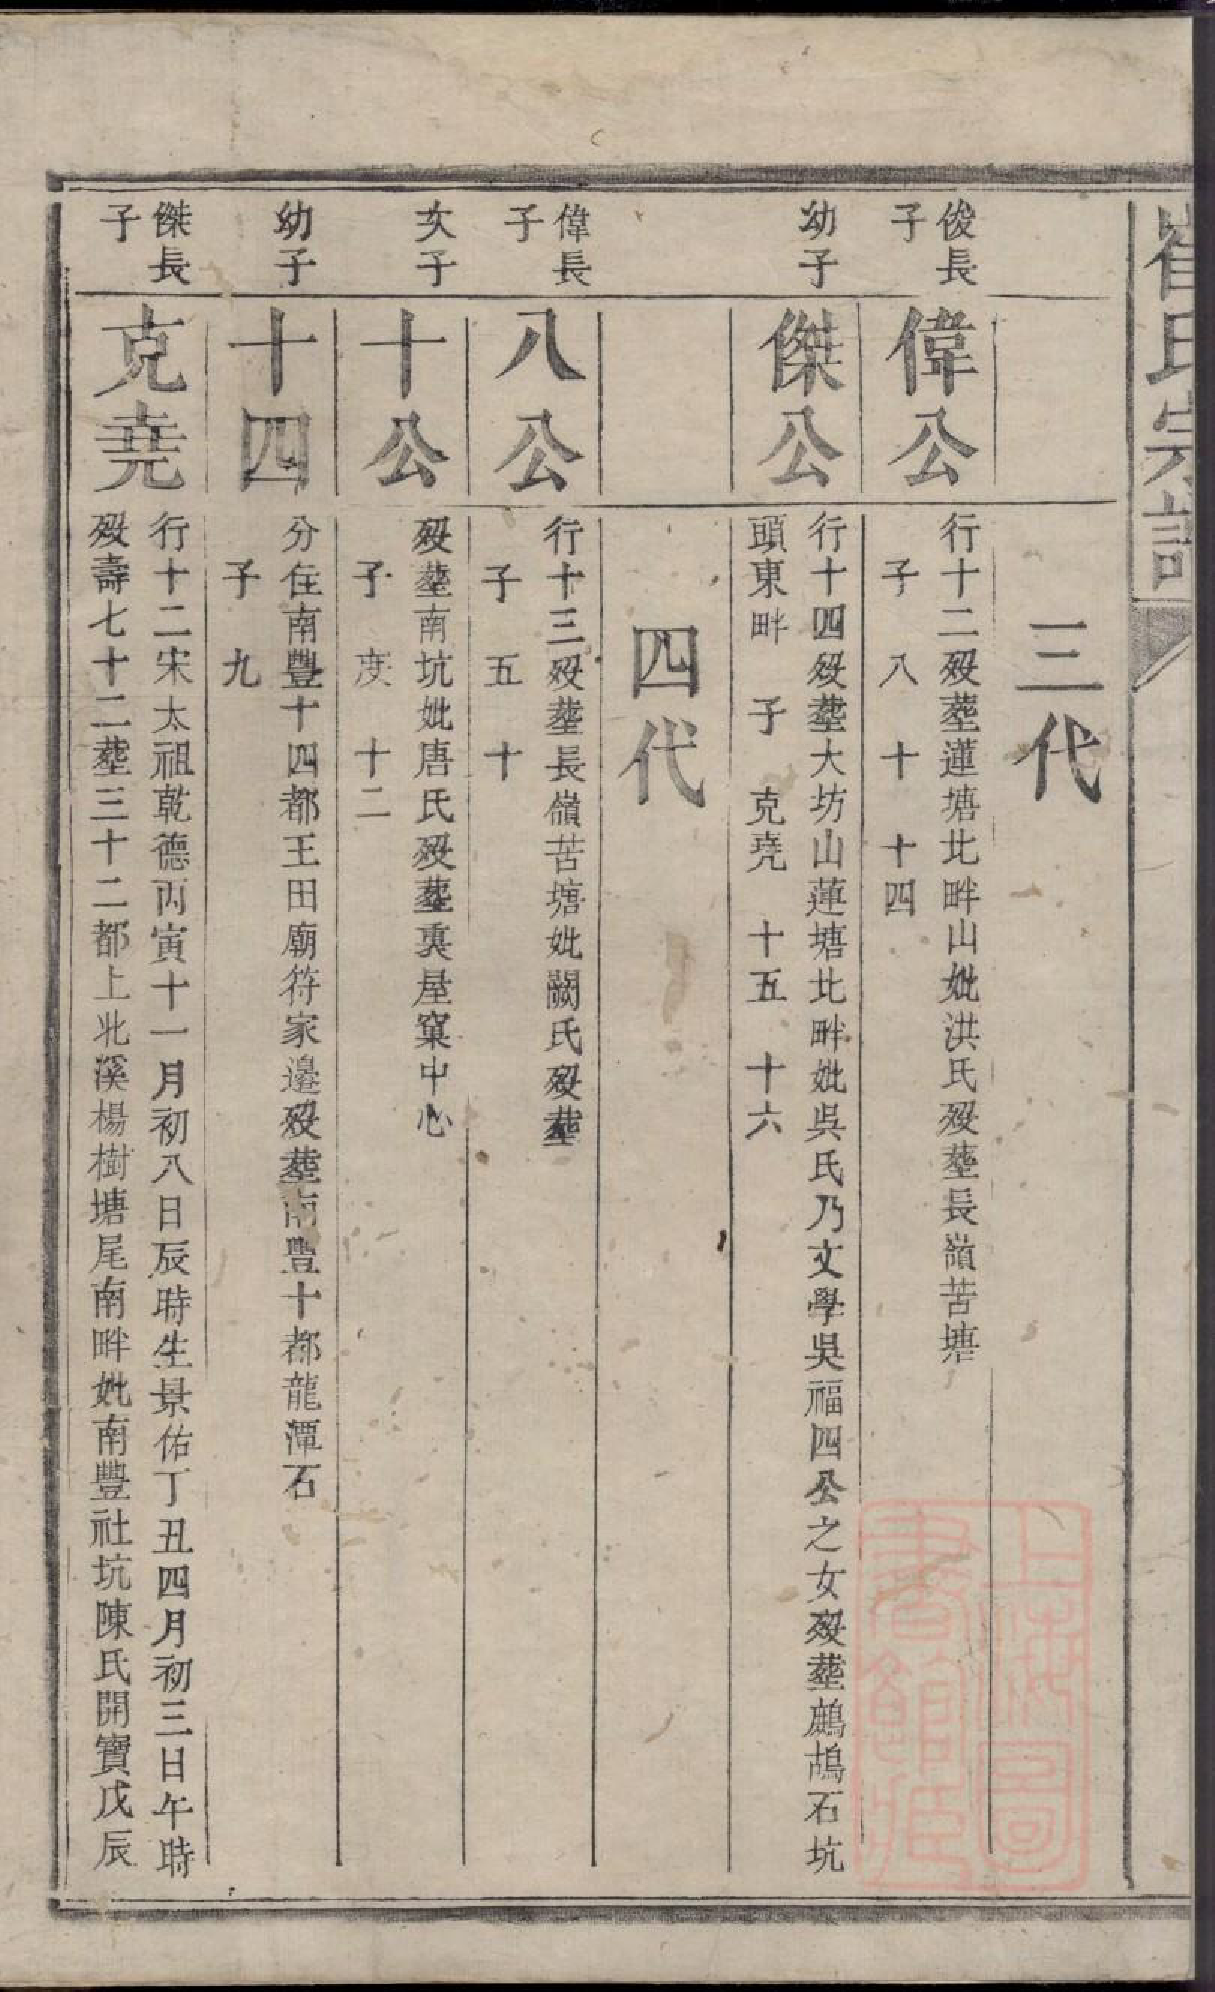 崔氏宗譜
三代
俊長
子
偉公
行十二歿塟蓮塘北畔山妣洪氏歿塟長嶺苦塘
子 八 十 十四
幼子
傑公
行十四歿塟大坊山蓮塘北畔妣吳氏乃文學吳福四公之女歿塟鷓鴣石坑
頭東畔 子 克堯 十五 十六
四代
偉長
子
八公
行十三歿塟長嶺苦塘妣闕氏歿塟
子 五 十
次子
十公
歿塟南坑妣唐氏歿塟裏屋窠中心
子 度 十二
幼子
十四
分住南豐十四都王田廟符家邊歿塟南豐十都龍潭石
子 九
傑長
子
克堯
行十二宋太祖乾德丙寅十一月初八日辰時生景佑丁丑四月初三日午時
歿壽七十二塟三十二都上北溪楊樹塘尾南畔妣南豐社坑陳氏開寶戊辰
上海圖
書館藏